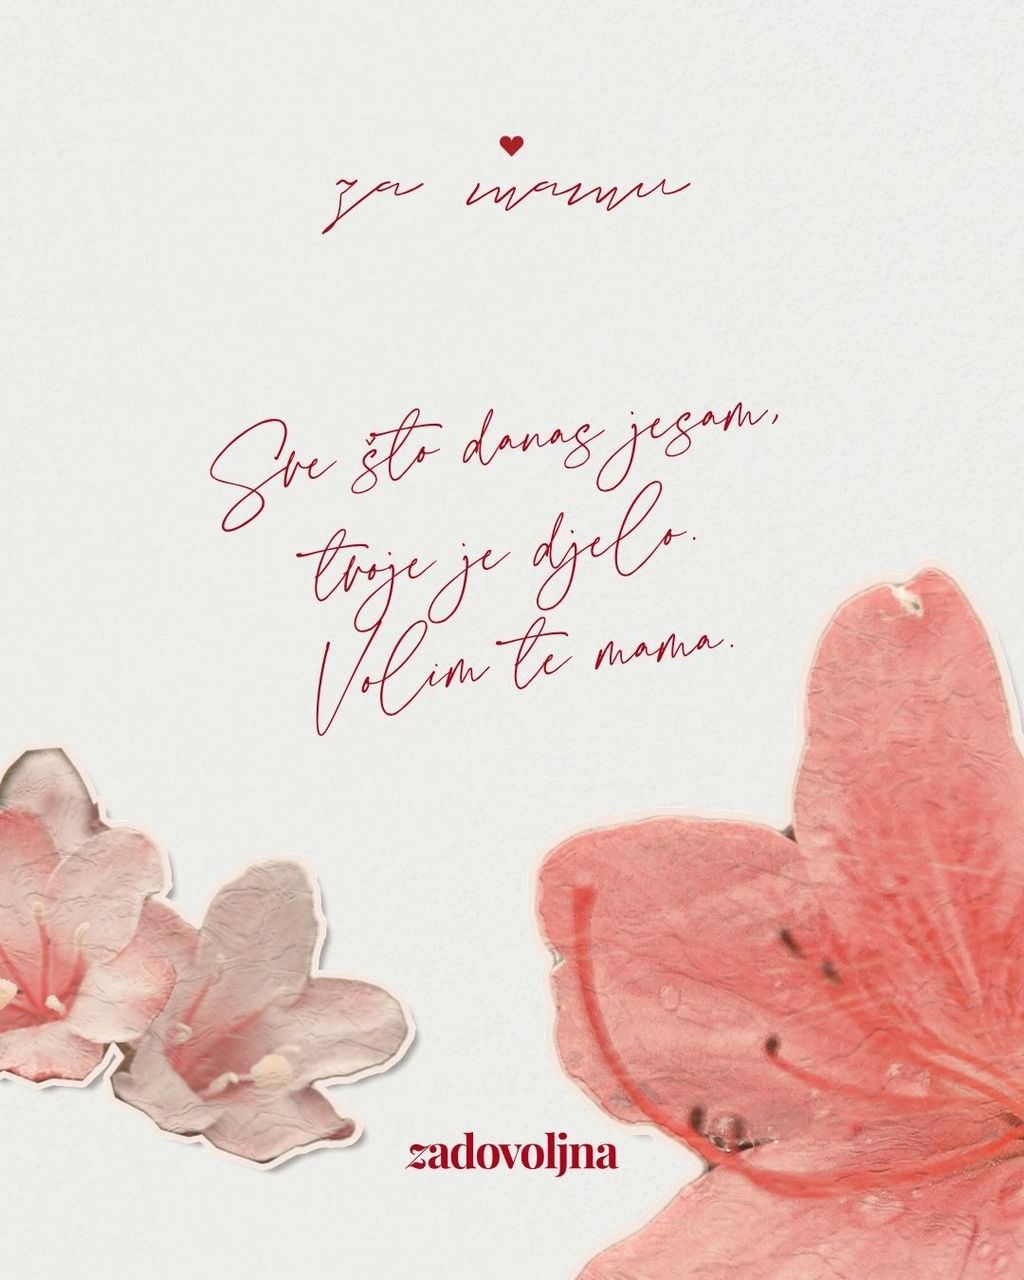 za mamu
Sve što danas jesam,
tvoje je djelo.
Volim te mama.
zadovoljna